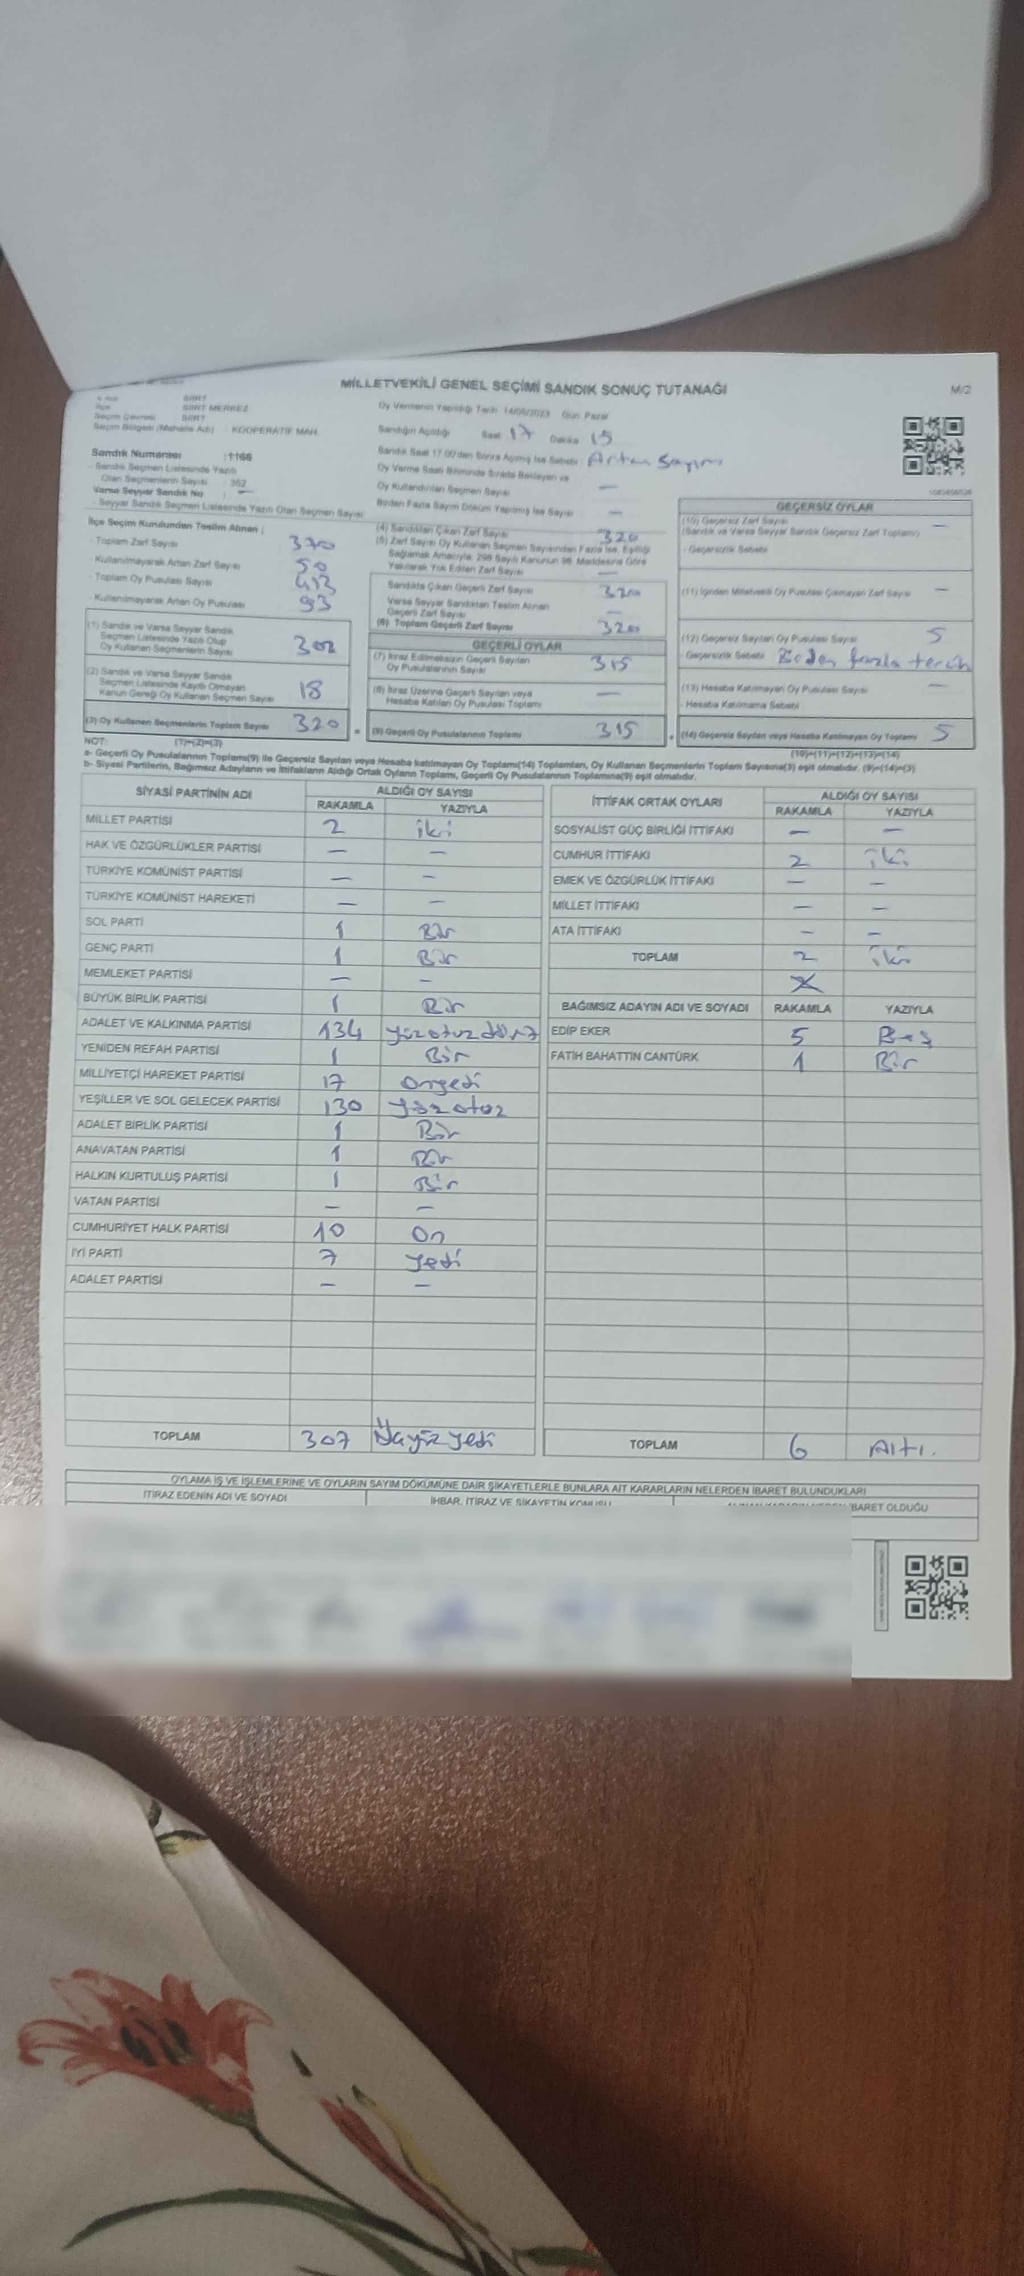 MİLLETVEKİLİ GENEL SEÇİMİ SANDIK SONUÇ TUTANAĞI
M/2
SİİRT
İlçe SİİRT MERKEZ
Seçim Çevresi SİİRT
Seçim Bölgesi (Mahalle Adı) : KOOPERATİF MAH.
Oy Vermenin Yapıldığı Tarih 14/05/2023 Gün Pazar
Sandığın Açıldığı Saat 17 Dakika 15
Sandık Numarası :1166
- Sandık Seçmen Listesinde Yazılı
Olan Seçmenlerin Sayısı : 362
Varsa Seyyar Sandık No : —
- Seyyar Sandık Seçmen Listesinde Yazılı Olan Seçmen Sayısı
Sandık Saat 17.00'den Sonra Açılmış İse Sebebi Artan Sayımı
Oy Verme Saati Bitiminde Sırada Bekleyen ve
Oy Kullandırılan Seçmen Sayısı —
Birden Fazla Sayım Döküm Yapılmış İse Sayısı —
İlçe Seçim Kurulundan Teslim Alınan ;
- Toplam Zarf Sayısı 370
- Kullanılmayarak Artan Zarf Sayısı 50
- Toplam Oy Pusulası Sayısı 413
- Kullanılmayarak Artan Oy Pusulası 93
(1) Sandık ve Varsa Seyyar Sandık
Seçmen Listesinde Yazılı Olup
Oy Kullanan Seçmenlerin Sayısı 302
(2) Sandık ve Varsa Seyyar Sandık
Seçmen Listesinde Kayıtlı Olmayan
Kanun Gereği Oy Kullanan Seçmen Sayısı 18
(3) Oy Kullanan Seçmenlerin Toplam Sayısı 320
(4) Sandıktan Çıkan Zarf Sayısı 320
(5) Zarf Sayısı Oy Kullanan Seçmen Sayısından Fazla İse, Eşitliği
Sağlamak Amacıyla, 298 Sayılı Kanunun 98. Maddesine Göre
Yakılarak Yok Edilen Zarf Sayısı —
Sandıkta Çıkan Geçerli Zarf Sayısı 320
Varsa Seyyar Sandıktan Teslim Alınan
Geçerli Zarf Sayısı —
(6) Toplam Geçerli Zarf Sayısı 320
GEÇERLİ OYLAR
(7) İtiraz Edilmeksizin Geçerli Sayılan
Oy Pusulalarının Sayısı 315
(8) İtiraz Üzerine Geçerli Sayılan veya
Hesaba Katılan Oy Pusulası Toplamı —
= (9) Geçerli Oy Pusulalarının Toplamı 315
GEÇERSİZ OYLAR
(10) Geçersiz Zarf Sayısı —
(Sandık ve Varsa Seyyar Sandık Geçersiz Zarf Toplamı)
- Geçersizlik Sebebi
(11) İçinden Milletvekili Oy Pusulası Çıkmayan Zarf Sayısı —
(12) Geçersiz Sayılan Oy Pusulası Sayısı 5
- Geçersizlik Sebebi Birden fazla tercih
(13) Hesaba Katılmayan Oy Pusulası Sayısı —
- Hesaba Katılmama Sebebi
+ (14) Geçersiz Sayılan veya Hesaba Katılmayan Oy Toplamı 5
NOT: (1)+(2)=(3)
(10)+(11)+(12)+(13)=(14)
a- Geçerli Oy Pusulalarının Toplamı(9) ile Geçersiz Sayılan veya Hesaba katılmayan Oy Toplamı(14) Toplamları, Oy Kullanan Seçmenlerin Toplam Sayısına(3) eşit olmalıdır. (9)+(14)=(3)
b- Siyasi Partilerin, Bağımsız Adayların ve İttifakların Aldığı Ortak Oyların Toplamı, Geçerli Oy Pusulalarının Toplamına(9) eşit olmalıdır.
SİYASİ PARTİNİN ADI ALDIĞI OY SAYISI
RAKAMLA YAZIYLA
MİLLET PARTİSİ 2 iki
HAK VE ÖZGÜRLÜKLER PARTİSİ — —
TÜRKİYE KOMÜNİST PARTİSİ — —
TÜRKİYE KOMÜNİST HAREKETİ — —
SOL PARTİ 1 Bir
GENÇ PARTİ 1 Bir
MEMLEKET PARTİSİ — —
BÜYÜK BİRLİK PARTİSİ 1 Bir
ADALET VE KALKINMA PARTİSİ 134 yüzotuzdört
YENİDEN REFAH PARTİSİ 1 Bir
MİLLİYETÇİ HAREKET PARTİSİ 17 onyedi
YEŞİLLER VE SOL GELECEK PARTİSİ 130 yüzotuz
ADALET BİRLİK PARTİSİ 1 Bir
ANAVATAN PARTİSİ 1 Bir
HALKIN KURTULUŞ PARTİSİ 1 Bir
VATAN PARTİSİ — —
CUMHURİYET HALK PARTİSİ 10 On
İYİ PARTİ 7 yedi
ADALET PARTİSİ — —
TOPLAM 307 Üçyüzyedi
İTTİFAK ORTAK OYLARI ALDIĞI OY SAYISI
RAKAMLA YAZIYLA
SOSYALİST GÜÇ BİRLİĞİ İTTİFAKI — —
CUMHUR İTTİFAKI 2 iki
EMEK VE ÖZGÜRLÜK İTTİFAKI — —
MİLLET İTTİFAKI — —
ATA İTTİFAKI — —
TOPLAM 2 iki
BAĞIMSIZ ADAYIN ADI VE SOYADI RAKAMLA YAZIYLA
EDİP EKER 5 Beş
FATİH BAHATTİN CANTÜRK 1 Bir
TOPLAM 6 Altı.
OYLAMA İŞ VE İŞLEMLERİNE VE OYLARIN SAYIM DÖKÜMÜNE DAİR ŞİKAYETLERLE BUNLARA AİT KARARLARIN NELERDEN İBARET BULUNDUKLARI
İTİRAZ EDENİN ADI VE SOYADI
İHBAR, İTİRAZ VE ŞİKAYETİN KONUSU
İBARET OLDUĞU